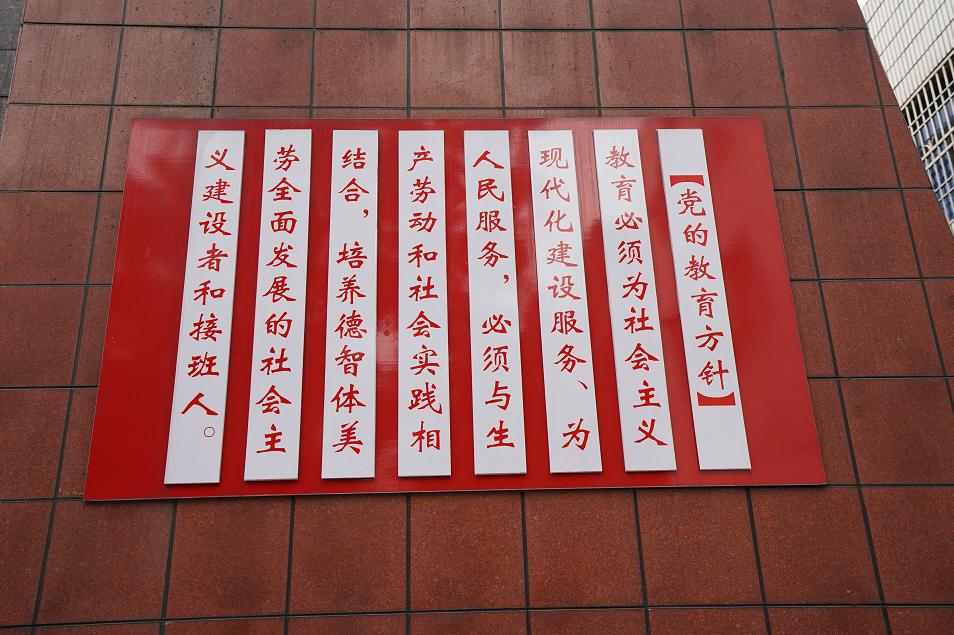 【党的教育方针】
教育必须为社会主义
现代化建设服务、为
人民服务，必须与生
产劳动和社会实践相
结合，培养德智体美
劳全面发展的社会主
义建设者和接班人。